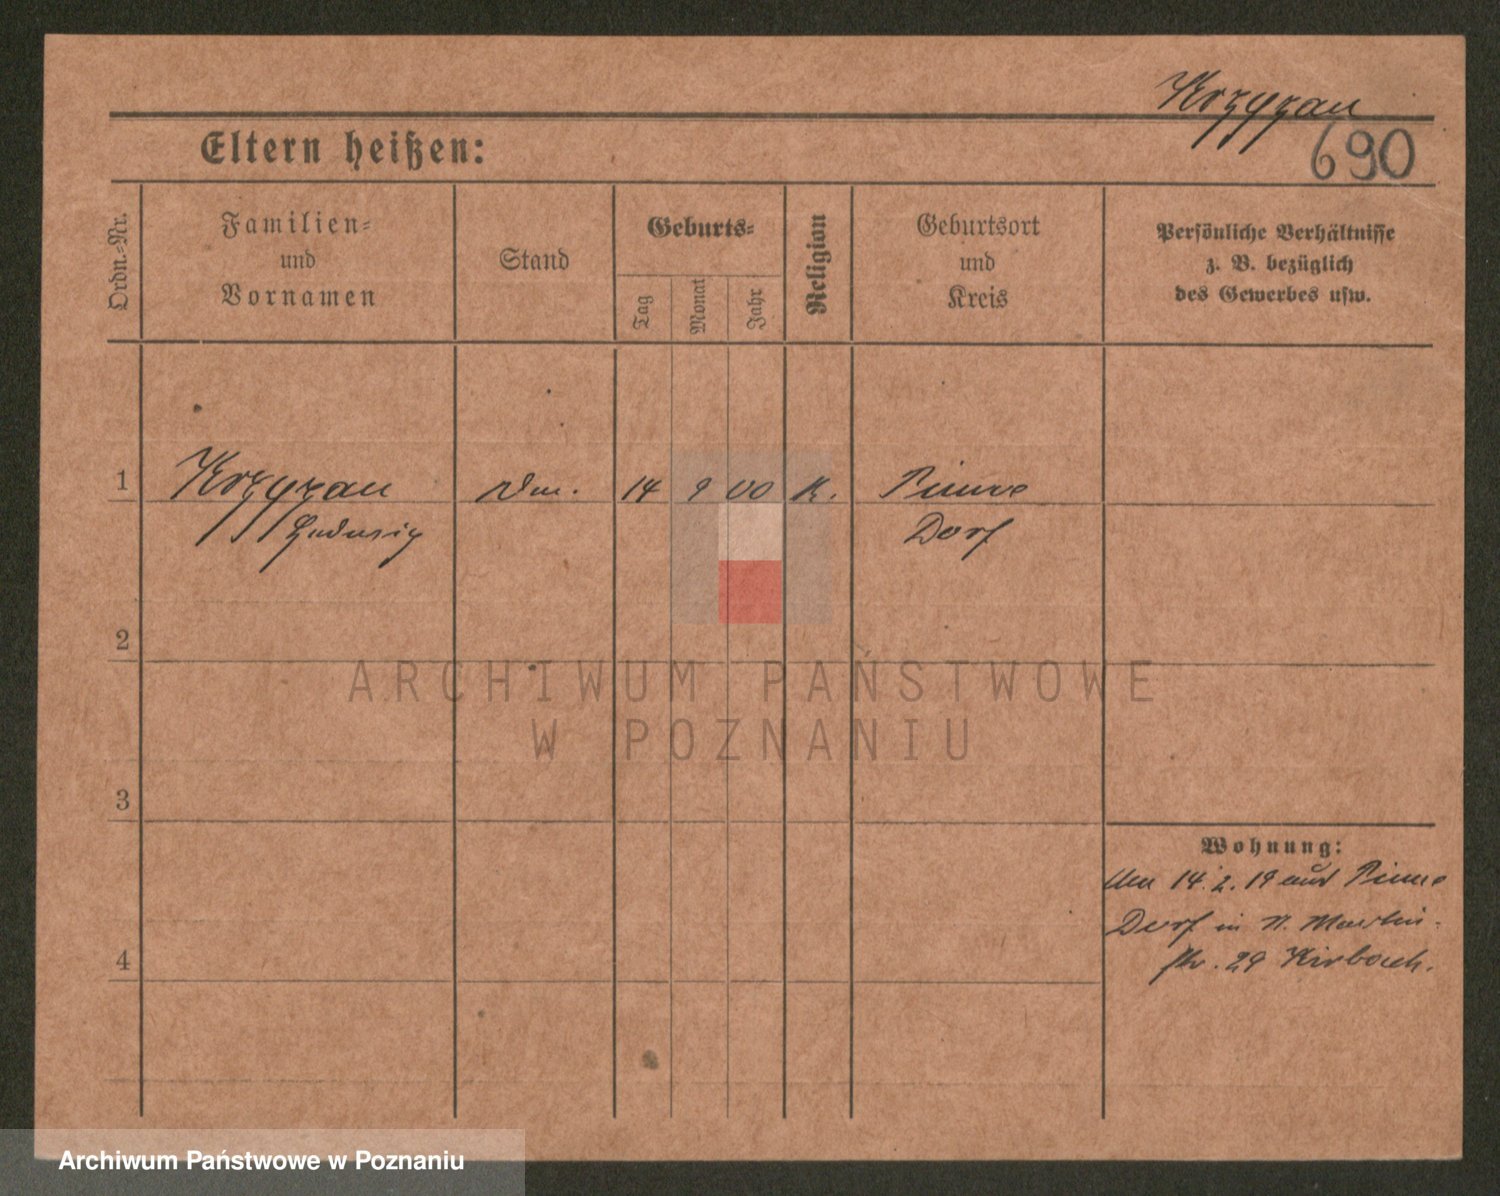 Krzyzan
690
Eltern heißen:
Ordn.-Nr.
Familien-
und
Vornamen
Stand
Geburts-
Tag
Monat
Jahr
Religion
Geburtsort
und
Kreis
Persönliche Verhältnisse
z. B. bezüglich
des Gewerbes usw.
1
14 9 00 K. Pinne
Hedwig
Dorf
2
ARCHIWUM PAŃSTWOWE
W POZNANIU
3
Wohnung:
14.2.19 aus Pinne
Dorf in Martin-
str. 29
4
Archiwum Państwowe w Poznaniu